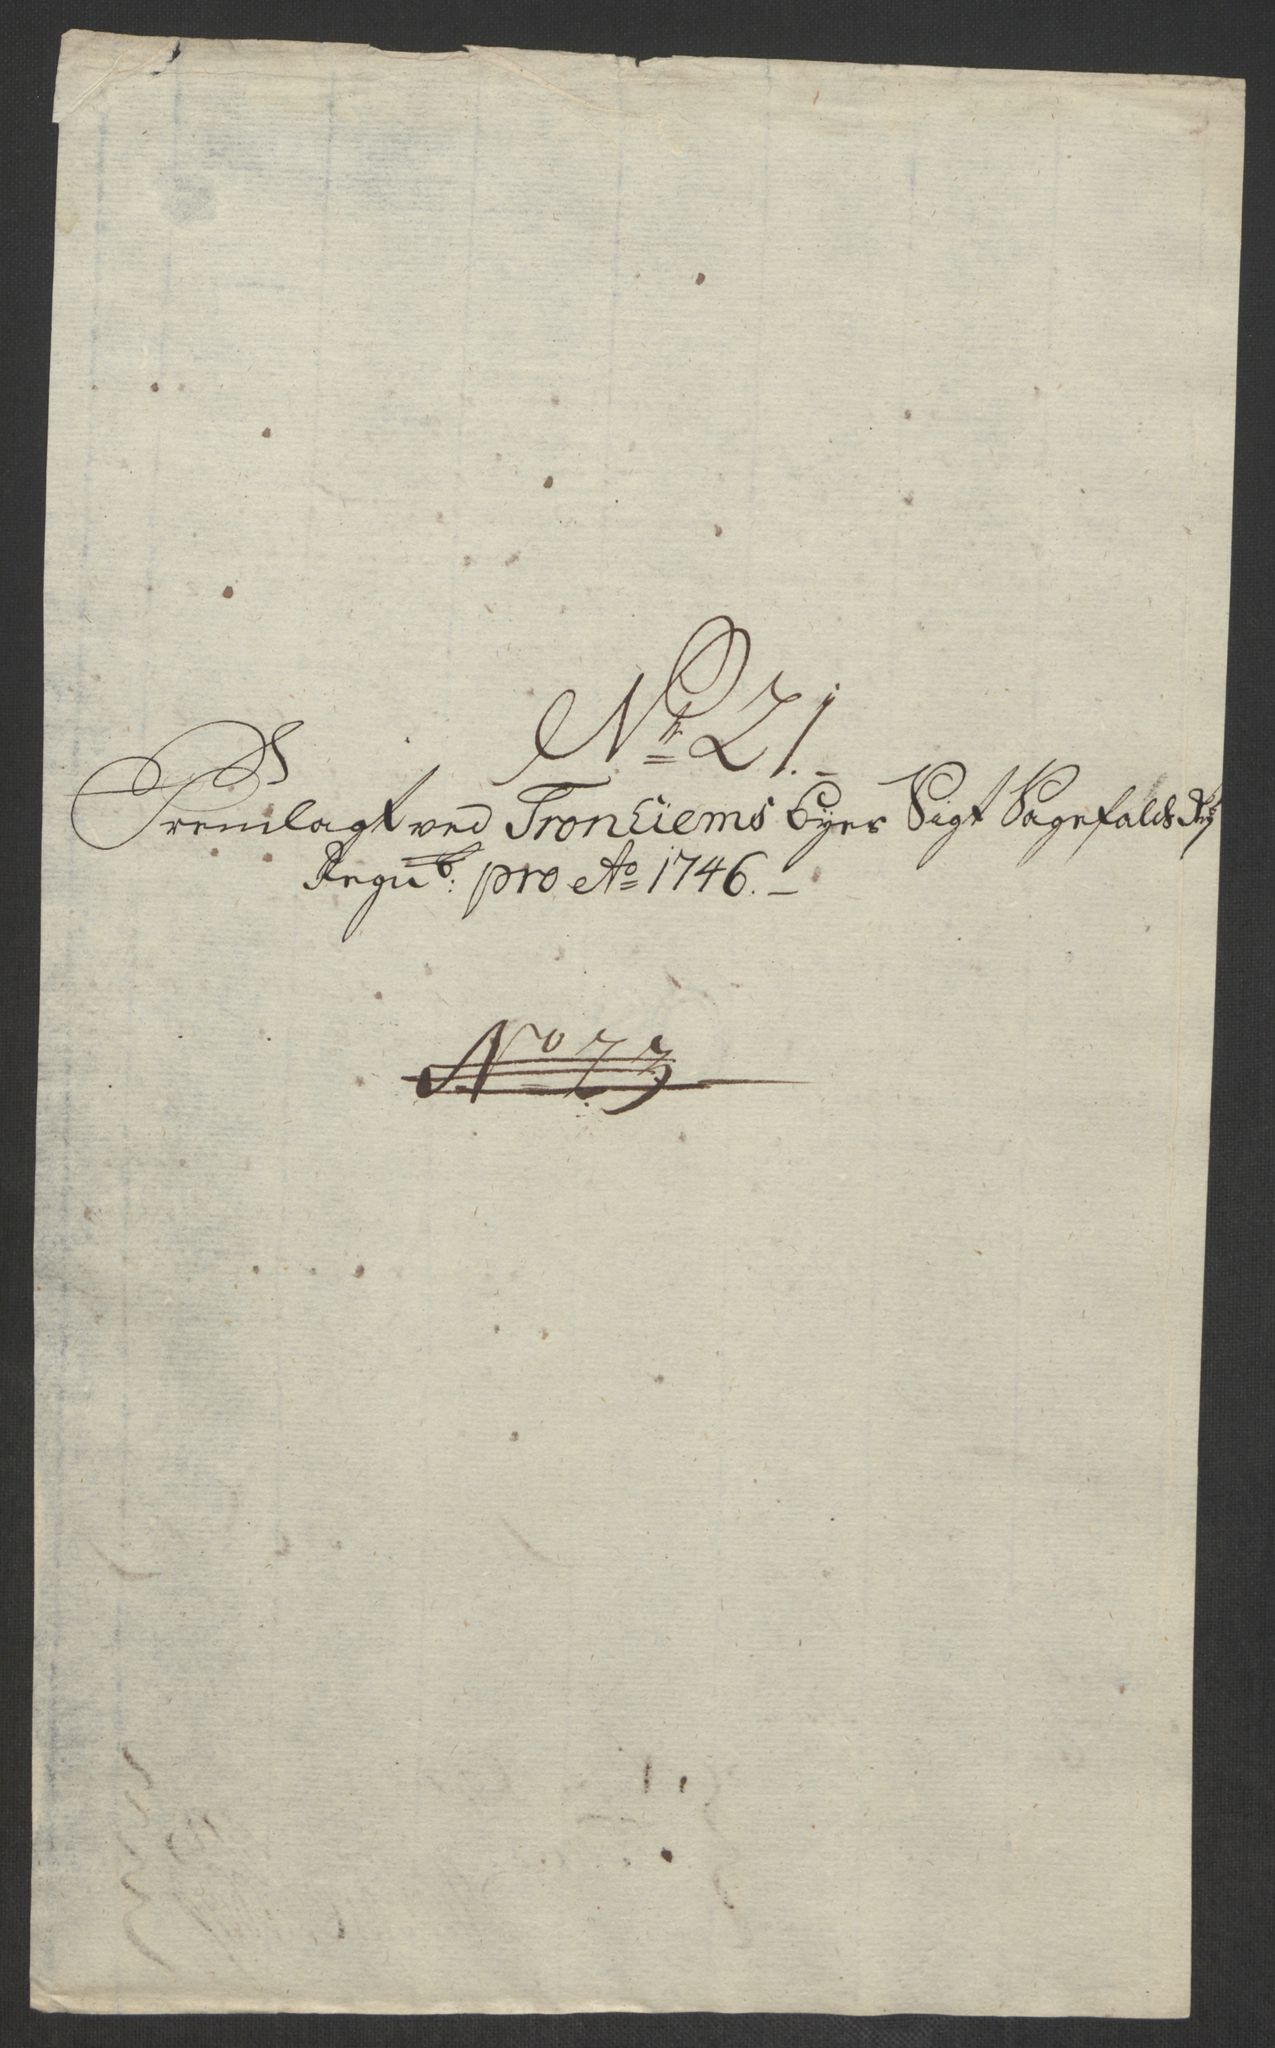 No 21.
Fremlagt ved Tronhiems Byes Sigt Sagefalds
Regnb: pro Ao 1746.
No 23